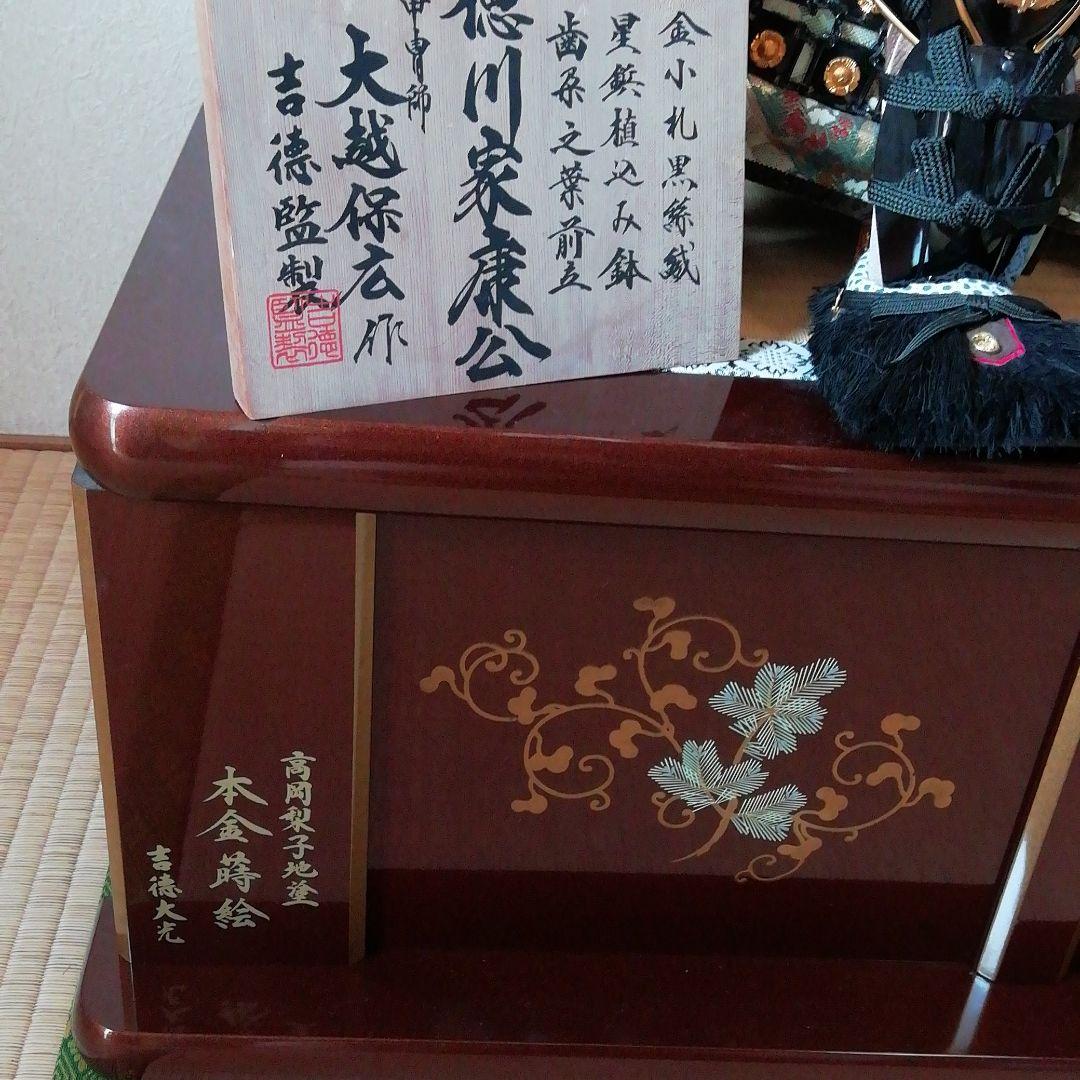 金小札黒絲縅
星鋲植込み鉢
歯朶之葉前立
徳川家康公
甲冑師
大越保広作
吉德監製
吉德監製
高岡梨子地塗
本金蒔絵
吉德大光